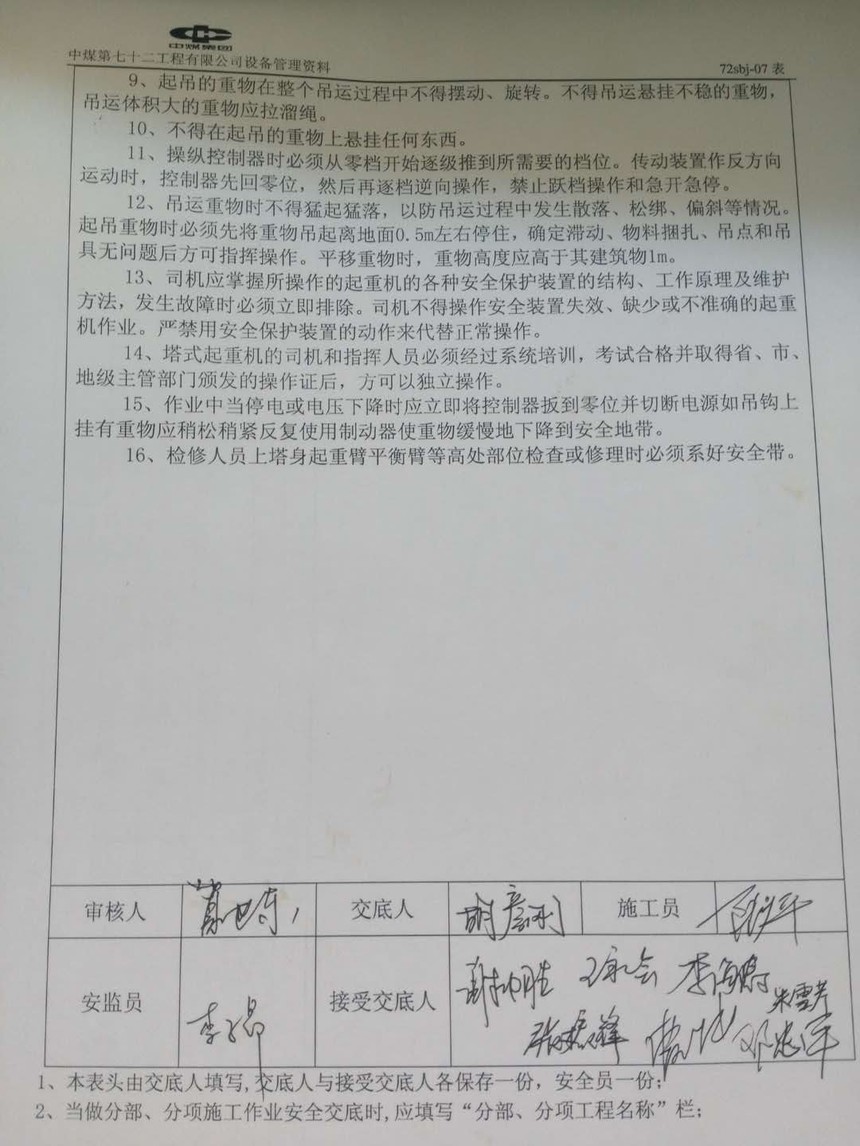 中煤集团
中煤第七十二工程有限公司设备管理资料 72sbj-07 表
9、起吊的重物在整个吊运过程中不得摆动、旋转。不得吊运悬挂不稳的重物，
吊运体积大的重物应拉溜绳。
10、不得在起吊的重物上悬挂任何东西。
11、操纵控制器时必须从零档开始逐级推到所需要的档位。传动装置作反方向
运动时，控制器先回零位，然后再逐档逆向操作，禁止跃档操作和急开急停。
12、吊运重物时不得猛起猛落，以防吊运过程中发生散落、松绑、偏斜等情况。
起吊重物时必须先将重物吊起离地面0.5m左右停住，确定滞动、物料捆扎、吊点和吊
具无问题后方可指挥操作。平移重物时，重物高度应高于其建筑物1m。
13、司机应掌握所操作的起重机的各种安全保护装置的结构、工作原理及维护
方法，发生故障时必须立即排除。司机不得操作安全装置失效、缺少或不准确的起重
机作业。严禁用安全保护装置的动作来代替正常操作。
14、塔式起重机的司机和指挥人员必须经过系统培训，考试合格并取得省、市、
地级主管部门颁发的操作证后，方可以独立操作。
15、作业中当停电或电压下降时应立即将控制器扳到零位并切断电源如吊钩上
挂有重物应稍松稍紧反复使用制动器使重物缓慢地下降到安全地带。
16、检修人员上塔身起重臂平衡臂等高处部位检查或修理时必须系好安全带。
审核人 交底人 施工员
安监员 接受交底人
1、本表头由交底人填写，交底人与接受交底人各保存一份，安全员一份；
2、当做分部、分项施工作业安全交底时，应填写“分部、分项工程名称”栏；